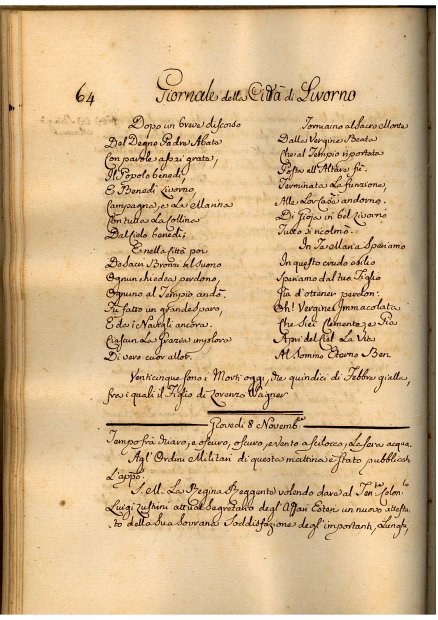 64 Giornale della Città di Livorno
Dopo un breve discorso
Del Degno Padre Abata
Con parole assai grata,
Il Popolo benedì,
E Benedì Livorno,
Campagna, e La Marina
Con tutta La Collina
Dal suo benedì;
E nella Città poi
De Sacri Bronzi al Suono
Ognun chiedea perdono,
Ognuno al Tempio andò.
Fu fatto un grande sparo,
E dai Navigli ancora.
Ciascun La Grazia implora
Di vero cuor allor.
Torniamo al Sacro Monte
Dalla Vergine Beata
Che al Tempio riportata
Posta all'Altare fù.
Terminata La funzione,
Alle Lor Case andorno.
Di Gioja in bel Livorno
Tutto si ricolmò.
In Te Maria Speriamo
In questo crudo esilio
Speriamo dal tuo Figlio
Già d'ottener perdon.
Oh! Vergine Immacolata
Che Siei Clemente, e Pia
Apri del Ciel La Via
Al Sommo Eterno Ben
Venticinque sono i Morti oggi, die quindici di Febbre gialla,
fra i quali il Figlio di Lorenzo Wagner
Giovedì 8 Novemb.e
Tempo frà chiaro, e oscuro, oscuro, e vento a scilocco, La Sera acqua.
Agl'Ordini Militari di questa mattina è stato pubblicat.
L'appo:
S. M. La Regina Reggente volendo dare al Ten.te Colon.lo
Luigi attual Segretario degl'Affari Esteri un nuovo attesta-
to della Sua Sovrana Soddisfazione degl'importanti, Lunghi,